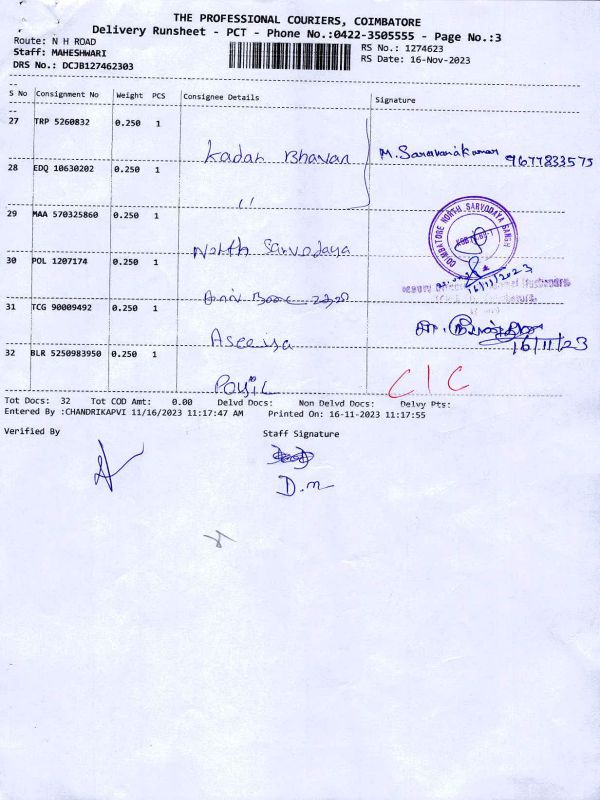 THE PROFESSIONAL COURIERS, COIMBATORE
Delivery Runsheet - PCT - Phone No.:0422-3505555 - Page No.:3
Route: N H ROAD
RS No.: 1274623
Staff: MAHESHWARI
RS Date: 16-Nov-2023
DRS No.: DCJB127462303
S No Consignment No Weight PCS Consignee Details Signature
27 TRP 5260832 0.250 1
Kadar Bhavan M. Saravanakumar 9677833575
28 EDQ 10630202 0.250 1
"
29 MAA 570325860 0.250 1
COIMBATORE NORTH SARVODAYA SANGH
North Sarvodaya
30 POL 1207174 0.250 1
16/11/2023
31 TCG 90009492 0.250 1
16/11/23
32 BLR 5250983950 0.250 1
C/C
Tot Docs: 32 Tot COD Amt: 0.00 Delvd Docs: Non Delvd Docs: Delvy Pts:
Entered By :CHANDRIKAPVI 11/16/2023 11:17:47 AM Printed On: 16-11-2023 11:17:55
Verified By Staff Signature
D.m